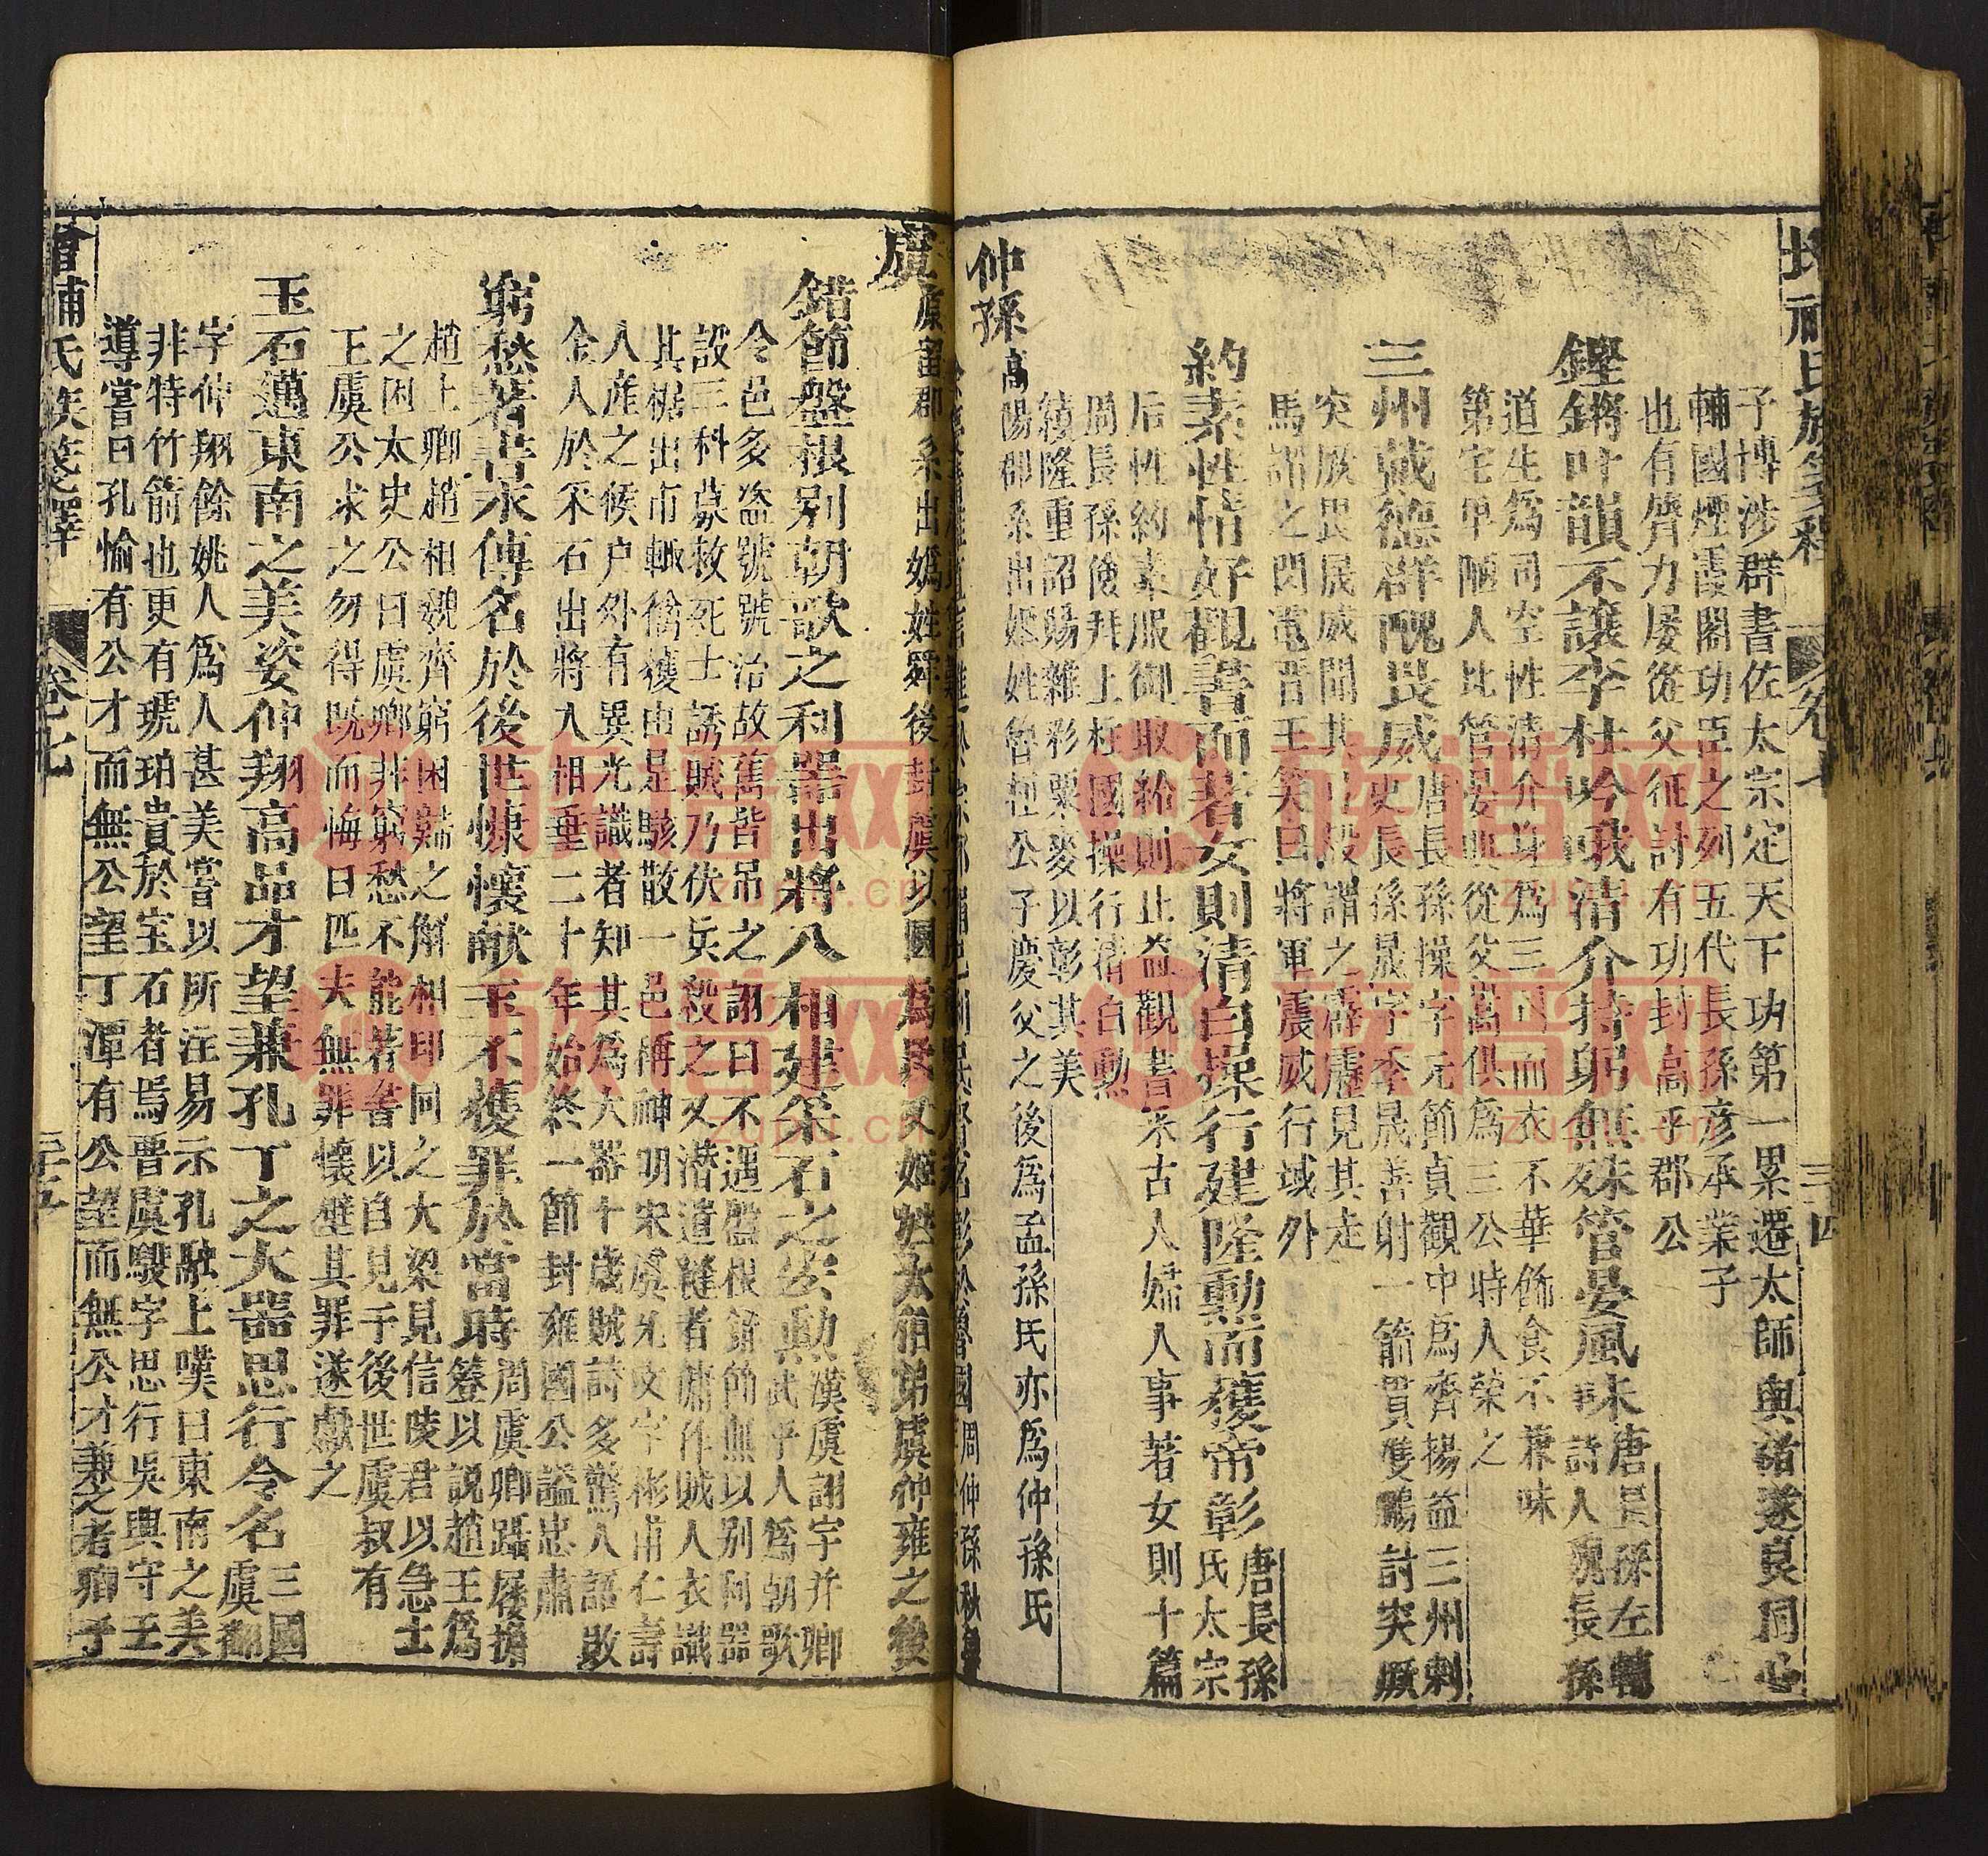 增補氏族箋釋 卷七 三四
子博涉群書佐太宗定天下功第一累遷太師與諸遂良同心
輔國煙霞閣功臣之列五代長孫彥承業子
也有膂力屡從父征討有功封高平郡公
鏗鏘叶韻不讓李杜吟哦清介持躬無殊管晏風味
唐長孫左輔
詩人魏長孫
道生為司空性清介身為三司而衣不華飾食不兼味
第宅卑陋人比管晏與從父嵩俱為三公時人榮之
三州藏德群醜畏威
唐長孫操字元節貞觀中為齊揚益三州刺
史長孫晟字季晟善射一箭貫雙鵰討突厥
突厥畏晟威聞其弓聲謂之霹靂見其走
馬謂之閃電晋王笑曰將軍震威行域外
約素性情好觀書而著女則清白操行建隆勳而獲帝彰
唐長孫
氏太宗
后性約素服御取給則止益觀書采古人婦人事著女則十篇
周長孫儉拜上柱國操行清白勳
績隆重詔賜雜彩粟麥以彰其美
仲孫 高陽郡系出姬姓魯桓公子慶父之後為孟孫氏亦為仲孫氏
周仲孫秋
虞 陳留郡系出媯姓舜後封虞以國為氏又姬姓太伯弟虞仲雍之後
錯節盤根別朝歌之利器出將入相建采石之宏勳
漢虞詡字升卿
武平人為朝歌
令邑多盜號號治故舊皆吊之詡曰不遇盤根錯節無以别利器
設三科募救死士誘賊乃伏兵殺之又潜遣縫者傭作賊人衣識
其裾出市輙擒獲由是駭散一邑稱神明宋虞允文字彬甫仁壽
人產之候户外有異光識者知其為大器十歲賊詩多驚人語敗
金人於采石出將入相垂二十年始終一節封雍國公謚忠肅
窮愁著書永傳名於後世懷懷献玉不獲罪於當時
周虞卿躡屐擔
簦以說趙王為
趙上卿趙相魏齊窮困難之觧相印同之大梁見信陵君以急士
之困太史公曰虞卿非窮愁不能若書以自見于後世虞叔有
玉虞公求之勿得既而悔曰匹夫無罪懷璧其罪遂獻之
玉石邁東南之美姿仲翔高品才望兼孔丁之大器思行令名
三國
虞翻
字仲翔餘姚人為人甚美嘗以所注易示孔融上嘆曰東南之美
非特竹箭也更有琥珀貴於宝石者焉晋虞𩦎字思行吳興守王
導嘗曰孔愉有公才而無公望丁潭有公望而無公才兼之者卿子
增補氏族箋釋 卷七 三五
族譜网
zupu.cn
族譜网
zupu.cn
族譜网
zupu.cn
族譜网
zupu.cn